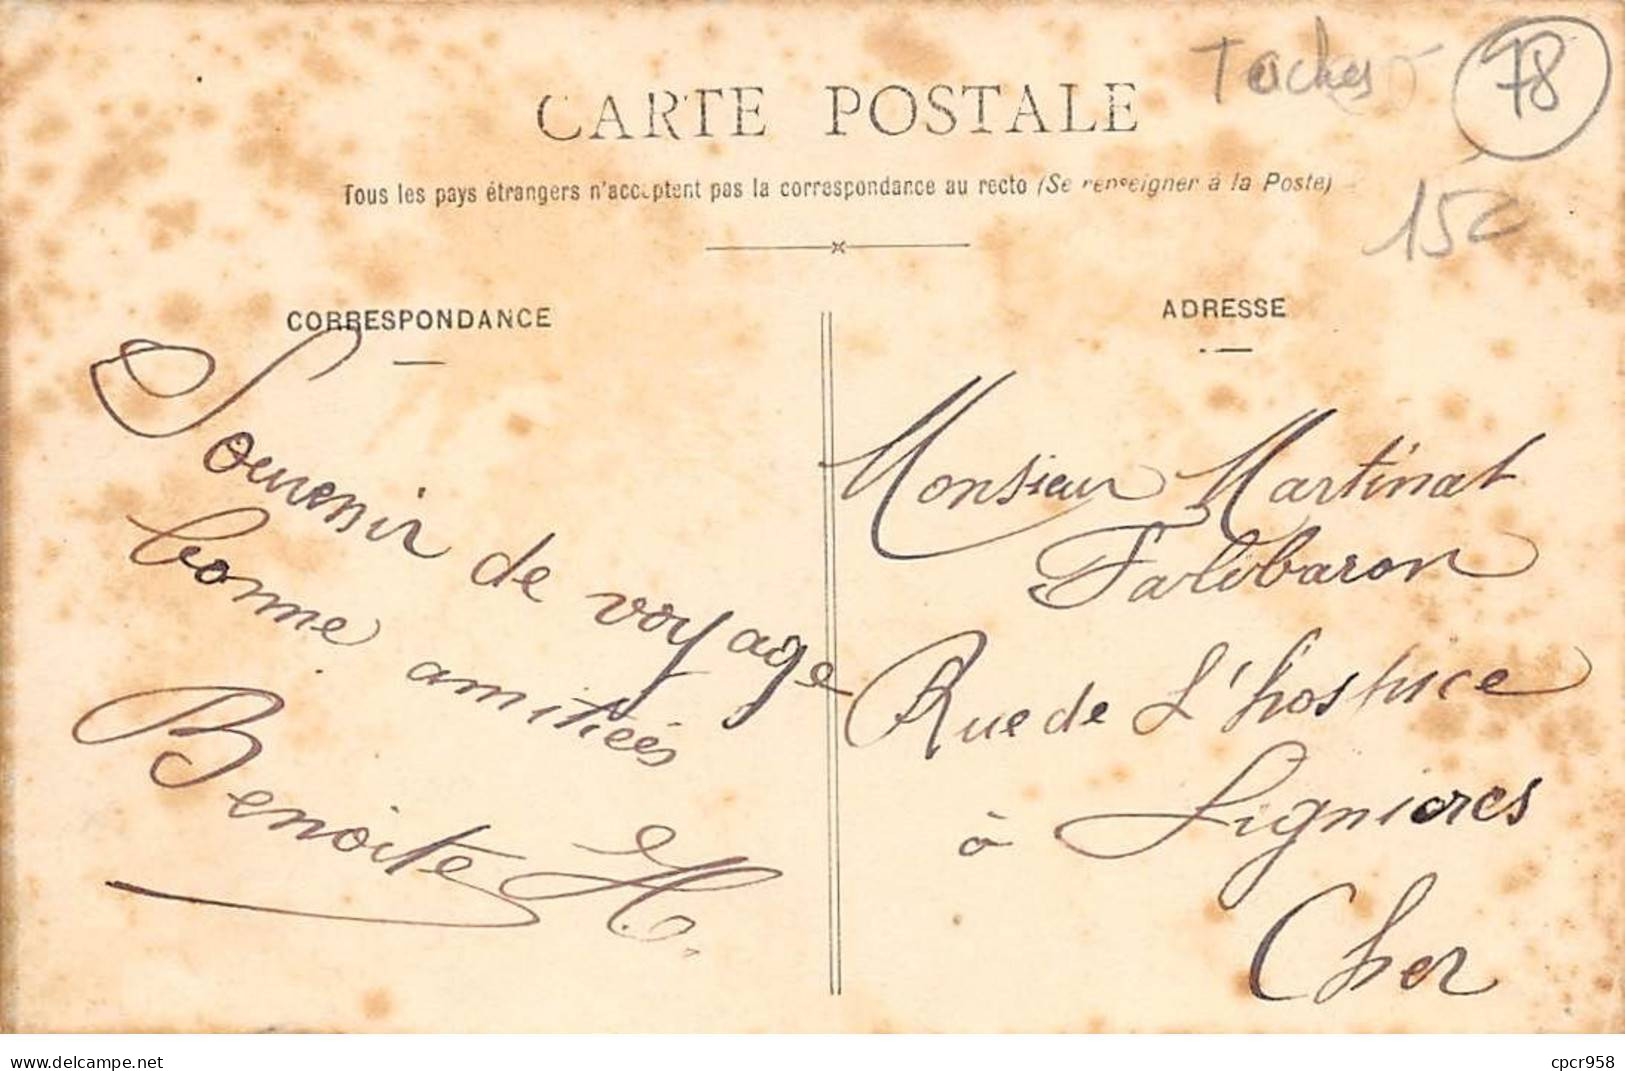 Tachés
78
CARTE POSTALE
Tous les pays étrangers n'acceptent pas la correspondance au recto (Se renseigner à la Poste)
15c
CORRESPONDANCE
Souvenir de voyage
bonne amitiées
Benoite H.
ADRESSE
Monsieur Martinat
Falibaron
Rue de L'hospice
à Lignières
Cher
www.delcampe.net
cpcr958